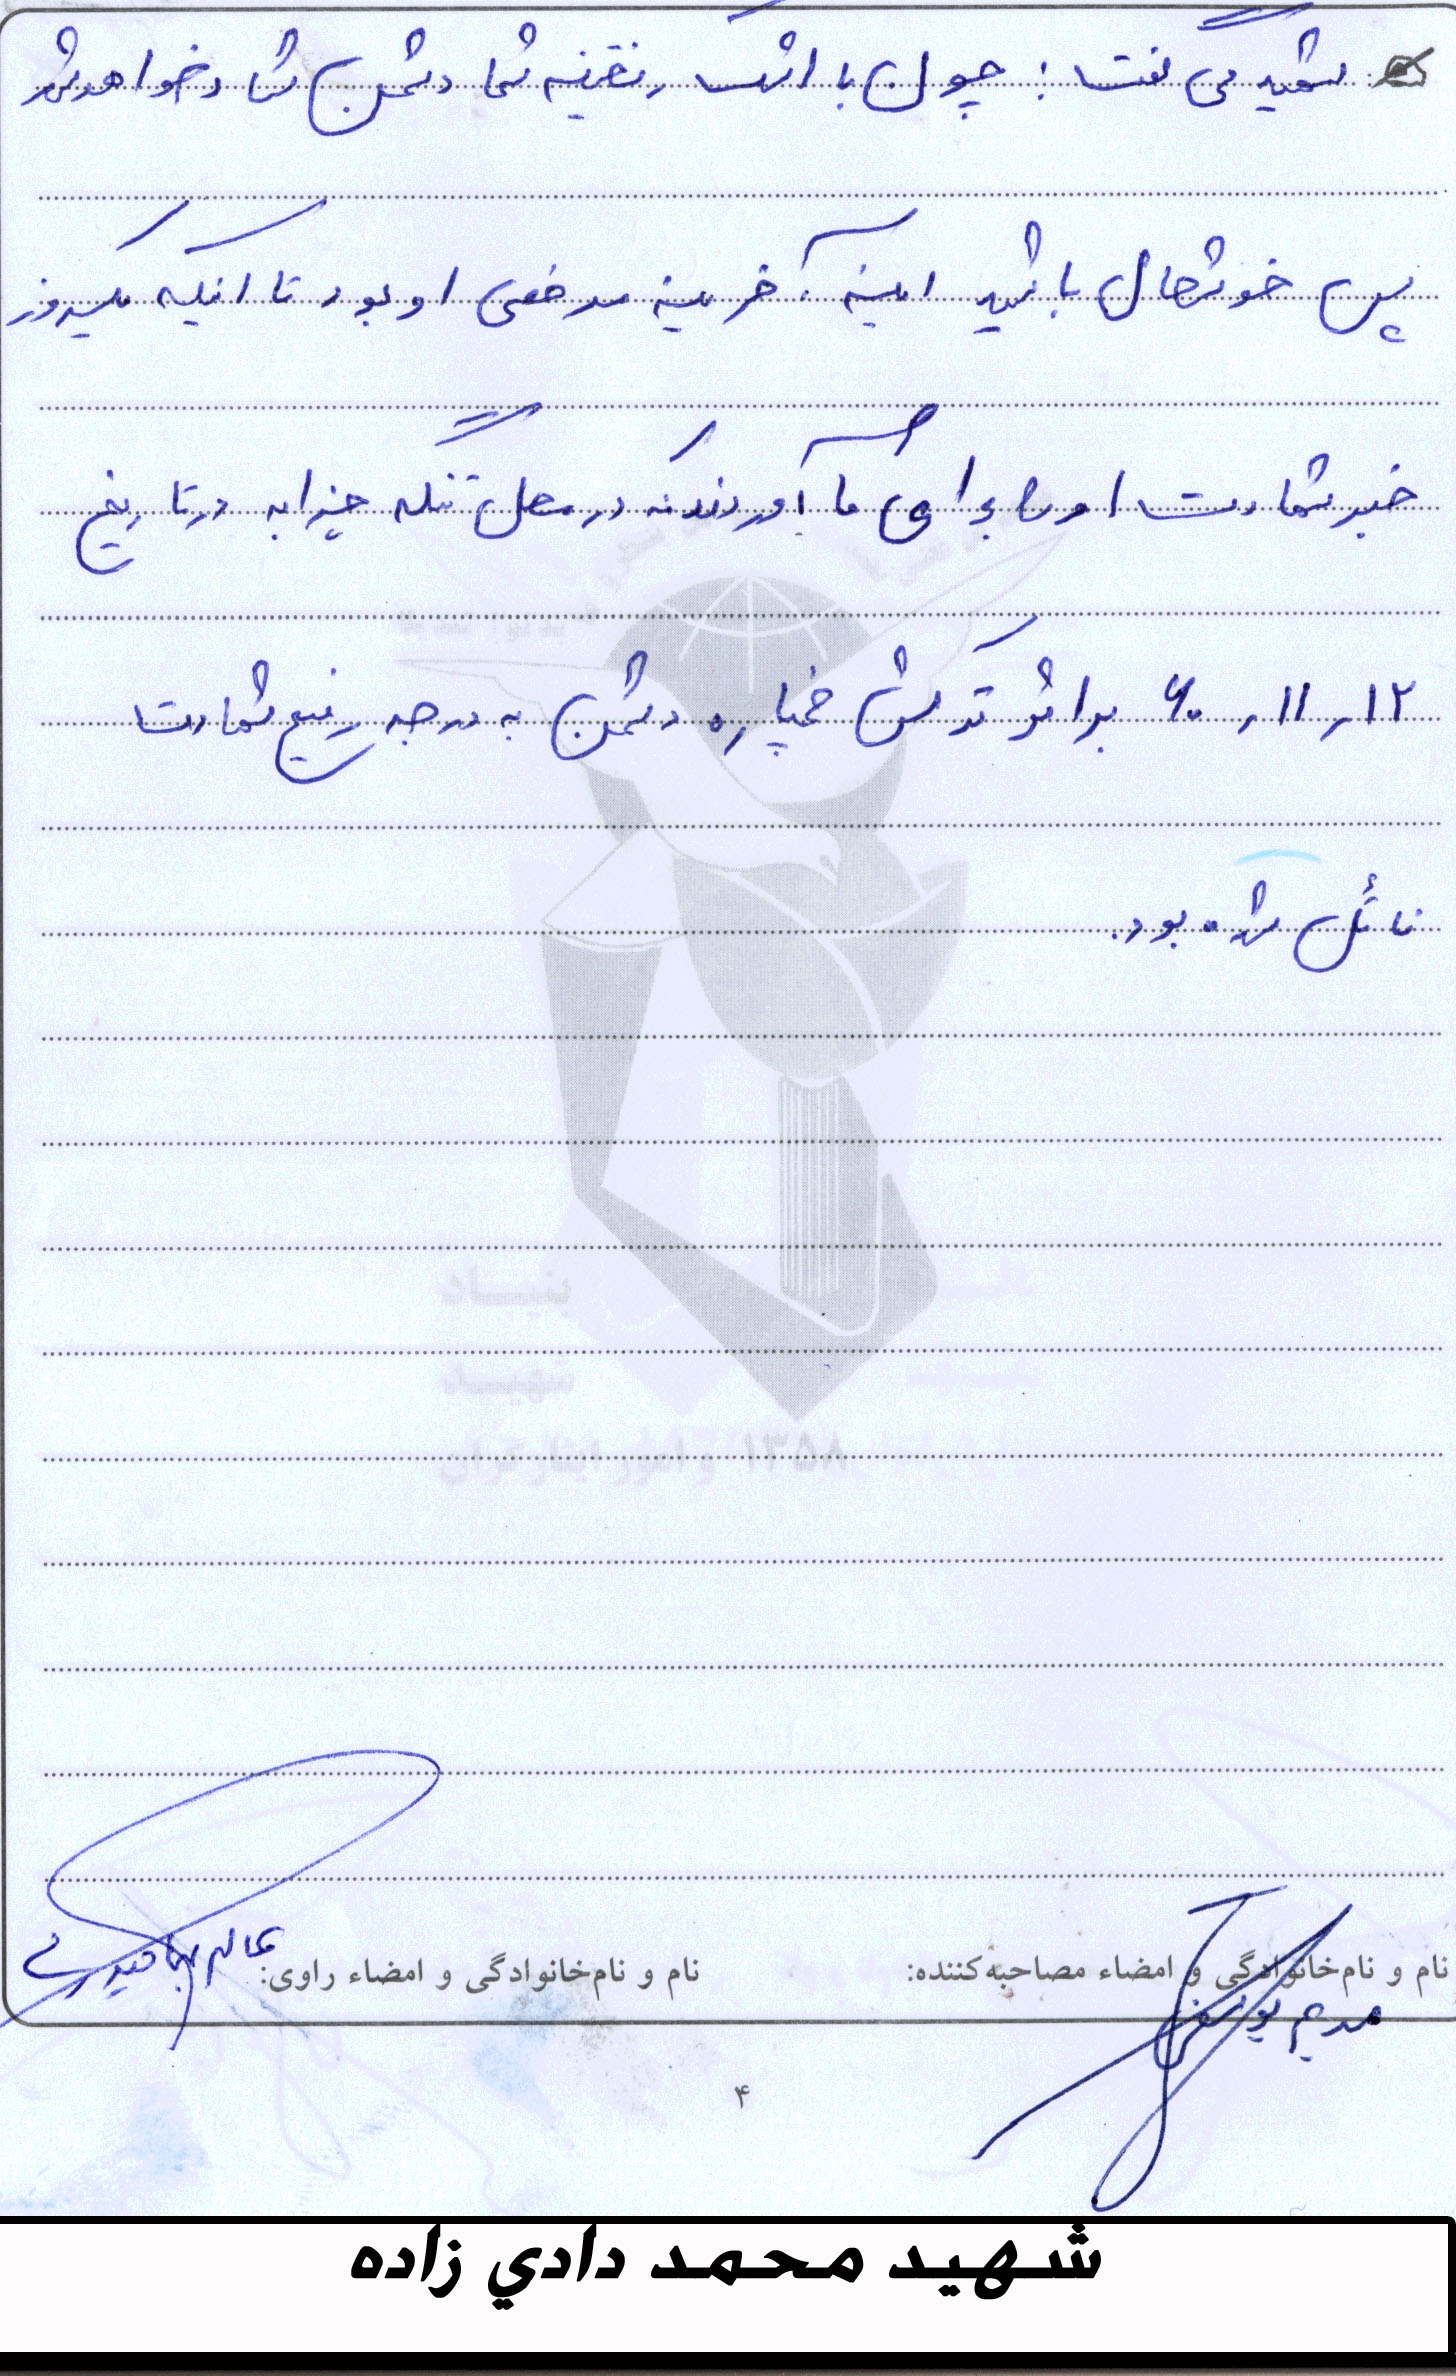 شهید می گفت : چون با اشک ریختن شما دشمن شاد خواهد شد
پس خوشحال باشید اینه آخرینه مرخصی او بود تا اینکه یکروز
خبر شهادت او را برای ما آوردند که در محل تنگه چزابه در تاریخ
۱۲ ر ۱۱ ر ۶۰ بر اثر ترکش خمپاره دشمن به درجه رفیع شهادت
نائل شده بود.
بنیاد
شهید
و امور ایثارگران ۱۳۵۸
نام و نام‌خانوادگی و امضاء مصاحبه‌کننده:
نام و نام‌خانوادگی و امضاء راوی:
مریم
۴
شهيد محمد دادي زاده